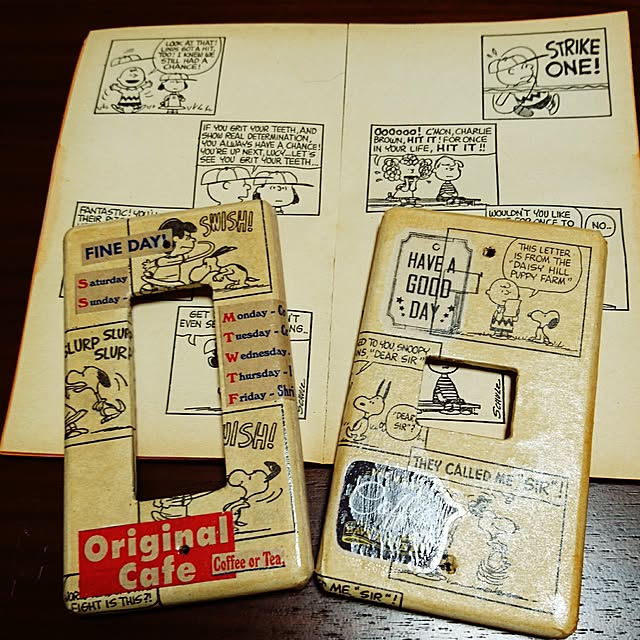 LOOK AT THAT!
LINUS GOT A HIT,
TOO! I KNEW WE
STILL HAD A
CHANCE!
STRIKE
ONE!
IF YOU GRIT YOUR TEETH, AND
SHOW REAL DETERMINATION,
YOU ALWAYS HAVE A CHANCE!
YOU'RE UP NEXT, LUCY...LET'S
SEE YOU GRIT YOUR TEETH...
OOOOOO! C'MON, CHARLIE
BROWN, HIT IT! FOR ONCE
IN YOUR LIFE, HIT IT!!
FANTASTIC! YOU'V
THEIR
WOULDN'T YOU LIKE
FOR ONCE TO
NO..
GET
EVEN SE
SCHULZ
FINE DAY!
SWISH!
Saturday
Sunday -
Monday - C
Tuesday - C
Wednesday
Thursday -
Friday - Shri
SLURP SLURP
SLURP
WISH!
Original
Cafe
Coffee or Tea.
FIGHT IS THIS?!
HAVE A
GOOD
DAY
THIS LETTER
IS FROM THE
"DAISY HILL
PUPPY FARM"
ED TO YOU, SNOOPY
NS, "DEAR SIR"
"DEAR
SIR"?
SCHULZ
THEY CALLED ME "SIR"!
ME "SIR"!